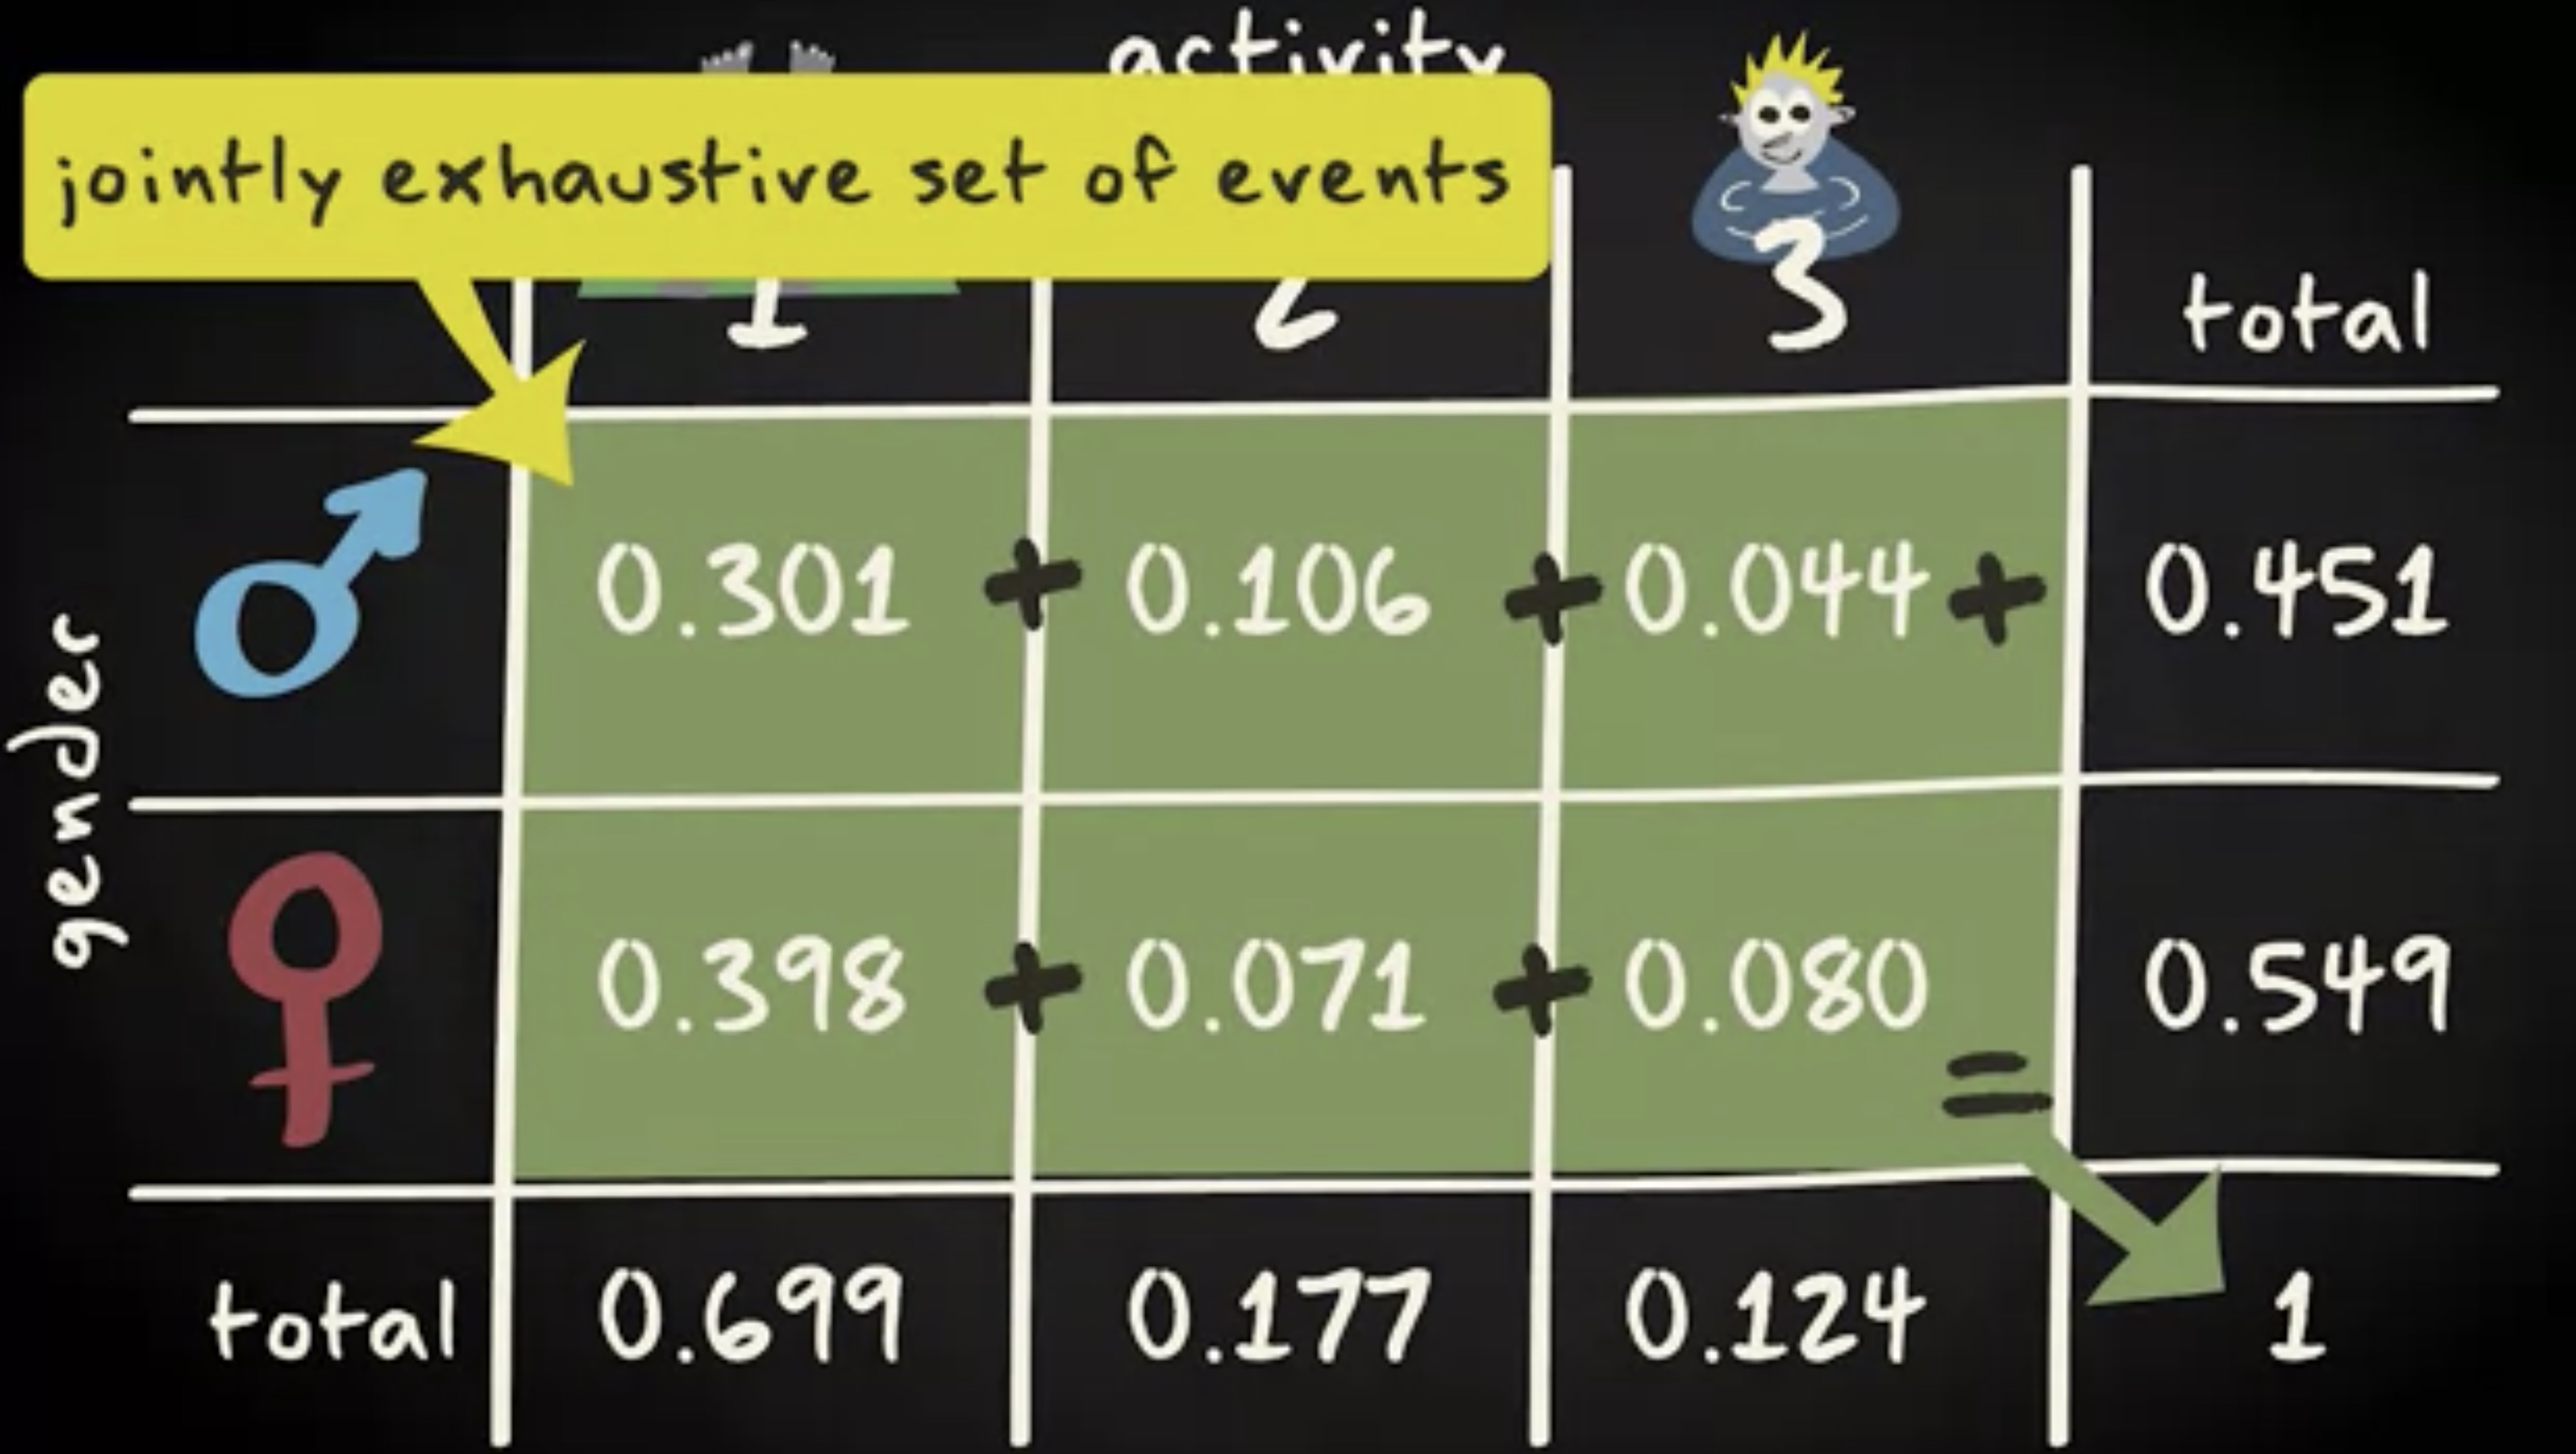 activity
jointly exhaustive set of events
1 2 3 total
gender
0.301 + 0.106 + 0.044 + 0.451
0.398 + 0.071 + 0.080 0.549
=
total 0.699 0.177 0.124 1